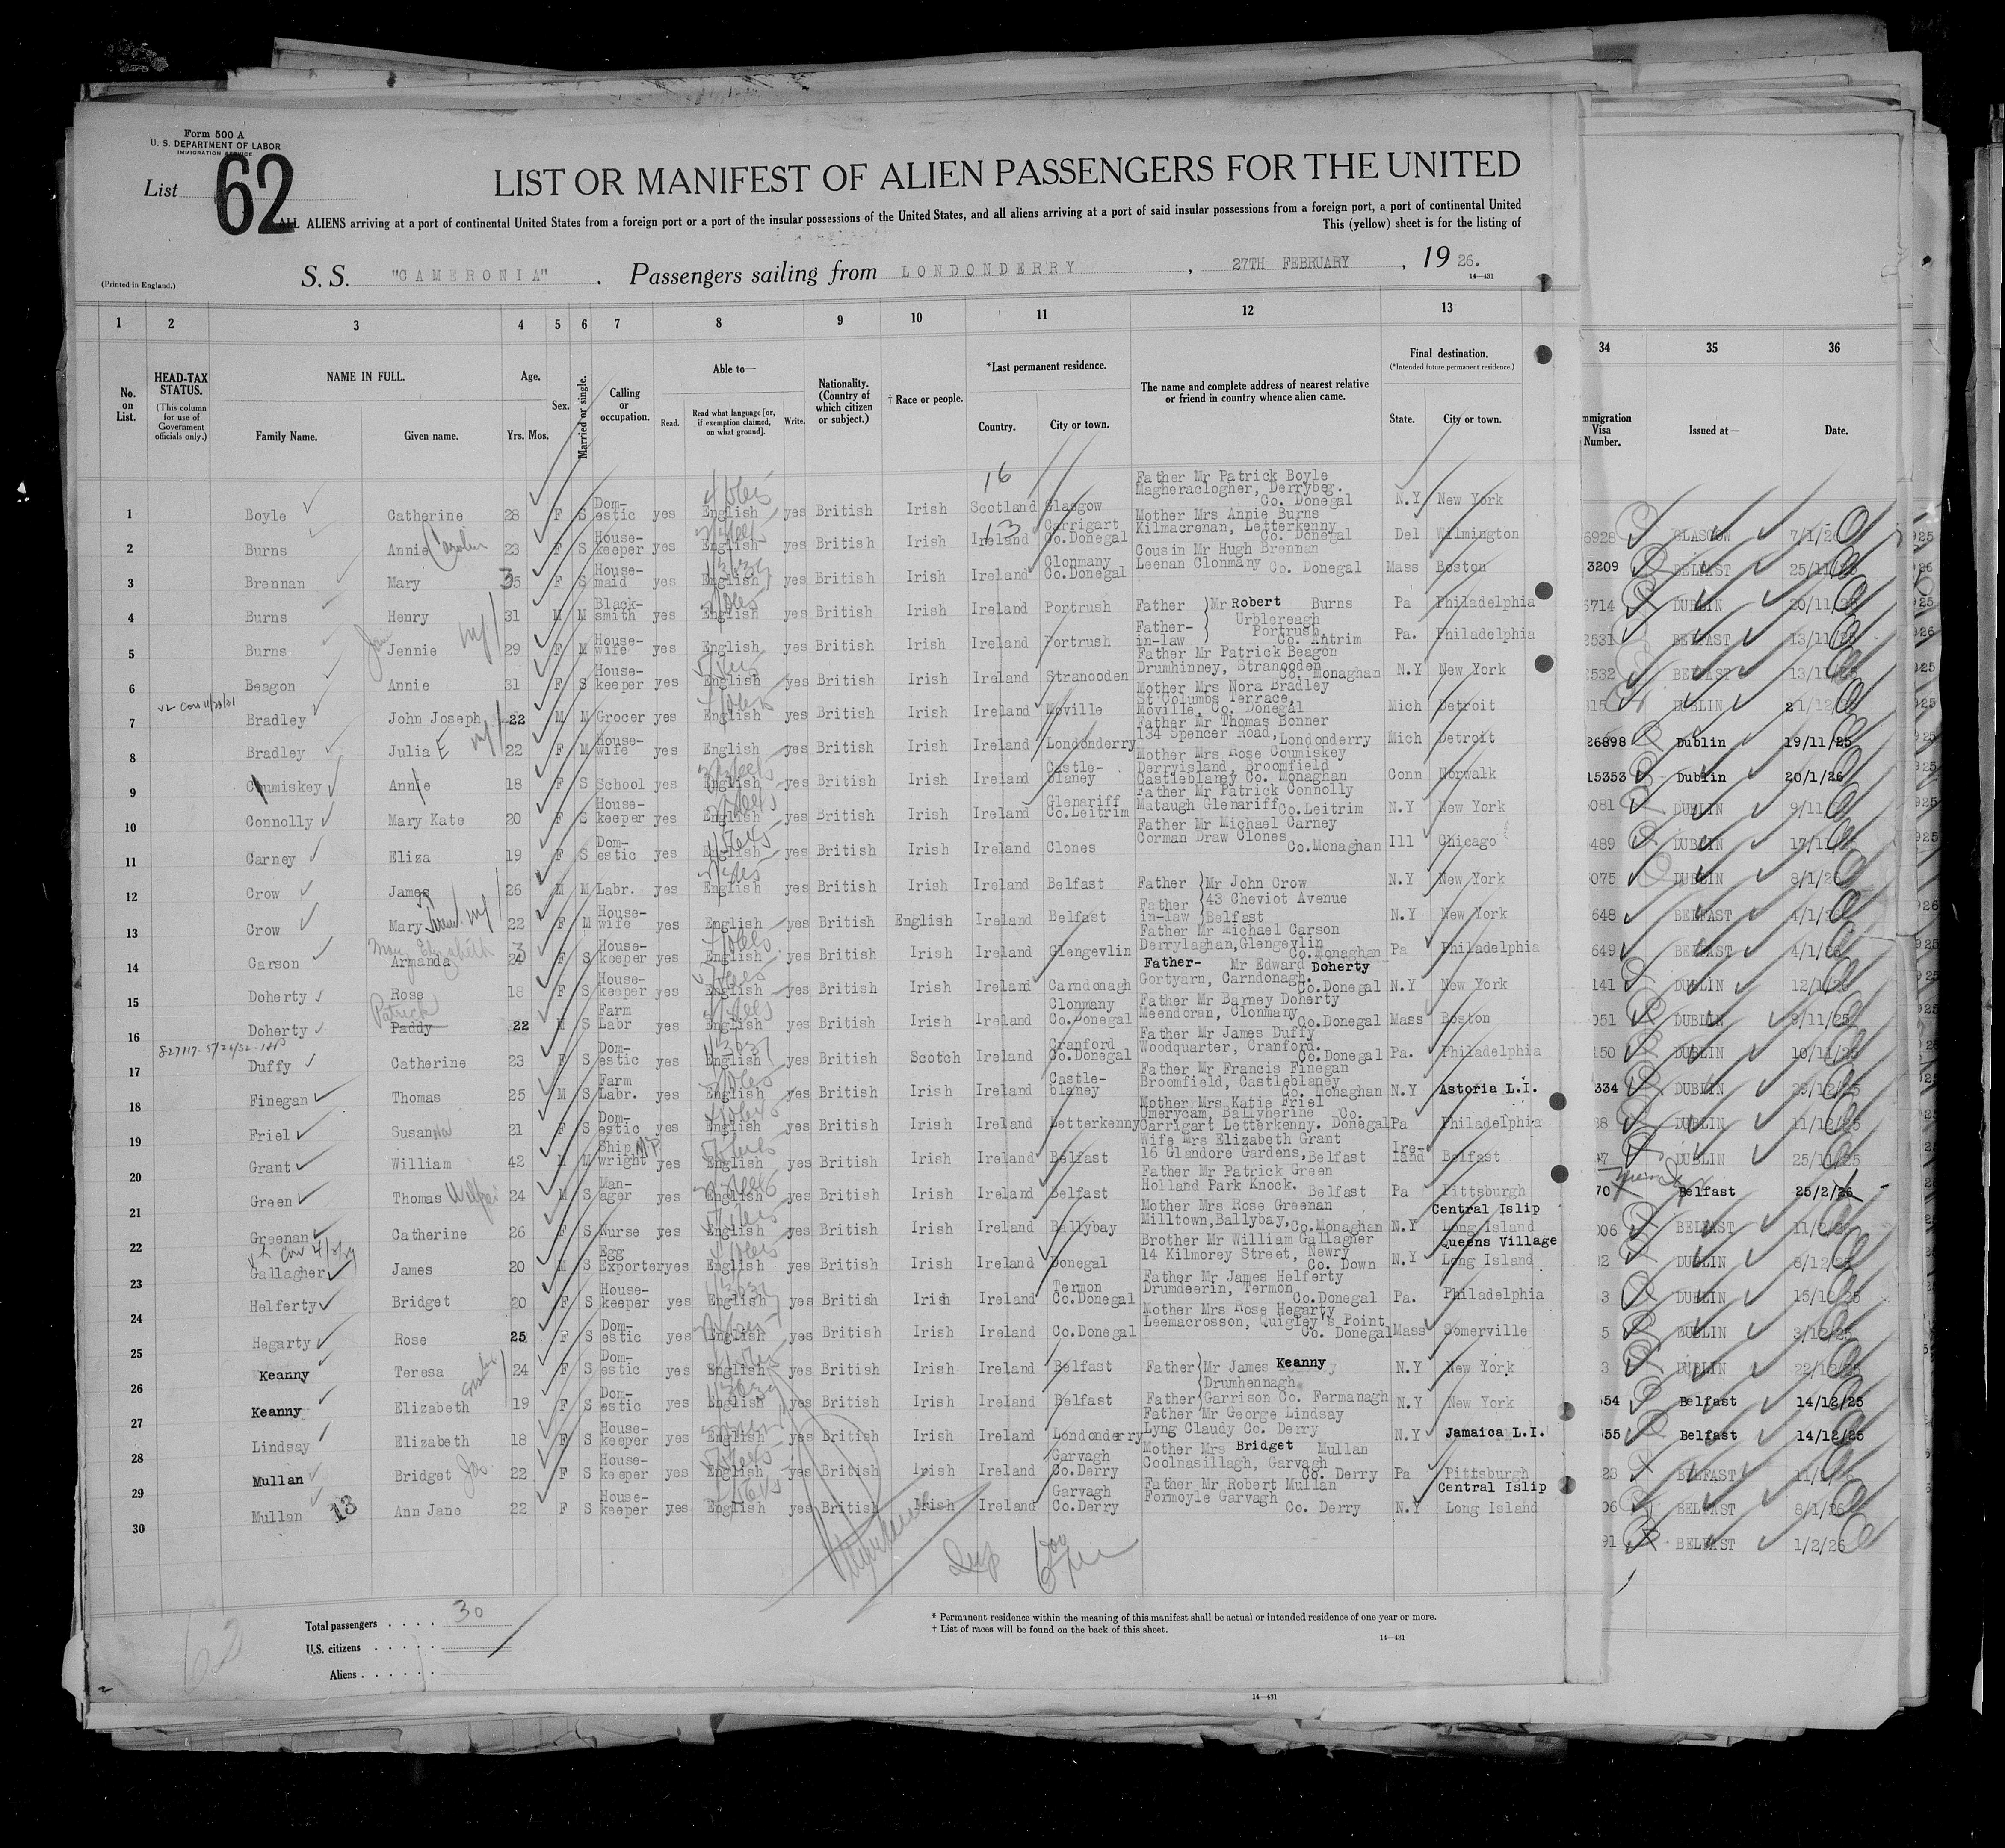 Form 500 A
U. S. DEPARTMENT OF LABOR
IMMIGRATION SERVICE
List 62
LIST OR MANIFEST OF ALIEN PASSENGERS FOR THE UNITED
ALL ALIENS arriving at a port of continental United States from a foreign port or a port of the insular possessions of the United States, and all aliens arriving at a port of said insular possessions from a foreign port, a port of continental United
This (yellow) sheet is for the listing of
S. S. "CAMERONIA" . Passengers sailing from LONDONDERRY , 27TH FEBRUARY , 19 26.
(Printed in England.)
14—431
1 2 3 4 5 6 7 8 9 10 11 12 13 34 35 36
No. on List.
HEAD-TAX STATUS.
(This column for use of Government officials only.)
NAME IN FULL.
Family Name. Given name.
Age.
Yrs. Mos.
Sex.
Married or single.
Calling or occupation.
Able to—
Read. Read what language [or, if exemption claimed, on what ground]. Write.
Nationality. (Country of which citizen or subject.)
† Race or people.
*Last permanent residence.
Country. City or town.
The name and complete address of nearest relative or friend in country whence alien came.
Final destination.
(*Intended future permanent residence.)
State. City or town.
Immigration Visa Number. Issued at— Date.
16
1 Boyle Catherine 28 F S Domestic yes English yes British Irish Scotland Glasgow Father Mr Patrick Boyle Magheraclogher, Derrybeg. Co. Donegal N.Y New York
13
2 Burns Annie Carolin 23 F S Housekeeper yes English yes British Irish Ireland Carrigart Co.Donegal Mother Mrs Annie Burns Kilmacrenan, Letterkenny Co. Donegal Del Wilmington
3 Brennan Mary 35 F S Housemaid yes English yes British Irish Ireland Clonmany Co.Donegal Cousin Mr Hugh Brennan Leenan Clonmany Co. Donegal Mass Boston
4 Burns Henry 31 M M Blacksmith yes English yes British Irish Ireland Portrush Father Mr Robert Burns Pa Philadelphia
5 Burns Jennie 29 F M Housewife yes English yes British Irish Ireland Portrush Father-in-law Urblereagh Portrush, Co. Antrim Pa. Philadelphia
6 Beagon Annie 31 F S Housekeeper yes English yes British Irish Ireland Stranooden Father Mr Patrick Beagon Drumhinney, Stranooden Co. Monaghan N.Y New York
7 Bradley John Joseph 22 M M Grocer yes English yes British Irish Ireland Moville Mother Mrs Nora Bradley St Columos Terrace, Moville, Co. Donegal Mich Detroit
8 Bradley Julia E 22 F M Housewife yes English yes British Irish Ireland Londonderry Father Mr Thomas Bonner 134 Spencer Road, Londonderry Mich Detroit
9 Coumiskey Annie 18 F S School yes English yes British Irish Ireland Castleblaney Mother Mrs Rose Coumiskey Derryisland, Broomfield Castleblaney Co. Monaghan Conn Norwalk
10 Connolly Mary Kate 20 F S Housekeeper yes English yes British Irish Ireland Glenariff Co.Leitrim Father Mr Patrick Connolly Mataugh Glenariff Co.Leitrim N.Y New York
11 Carney Eliza 19 F S Domestic yes English yes British Irish Ireland Clones Father Mr Michael Carney Corman Draw Clones Co.Monaghan Ill Chicago
12 Crow James 26 M M Labr. yes English yes British Irish Ireland Belfast Father Mr John Crow N.Y New York
13 Crow Mary 22 F M Housewife yes English yes British English Ireland Belfast Father in-law 43 Cheviot Avenue Belfast N.Y New York
14 Carson Armanda Mary Elizabeth F S Housekeeper yes English yes British Irish Ireland Glengevlin Father Mr Michael Carson Derrylaghan, Glengevlin Co.Monaghan Pa Philadelphia
15 Doherty Rose 18 F S Housekeeper yes English yes British Irish Ireland Carndonagh Father- Mr Edward Doherty Gortyarn, Carndonagh. Co.Donegal N.Y New York
16 Doherty Paddy Patrick 22 M S Farm Labr yes English yes British Irish Ireland Clonmany Co.Donegal Father Mr Barney Doherty Meendoran, Clonmany Co.Donegal Mass Boston
17 Duffy Catherine 23 F S Domestic yes English yes British Scotch Ireland Cranford Co.Donegal Father Mr James Duffy Woodquarter, Cranford. Co.Donegal Pa. Philadelphia
18 Finegan Thomas 25 M S Farm Labr. yes English yes British Irish Ireland Castleblaney Father Mr Francis Finegan Broomfield, Castleblaney Co. Monaghan N.Y Astoria L.I.
19 Friel Susanna 21 F S Domestic yes English yes British Irish Ireland Letterkenny Mother Mrs Katie Friel Umerycam, Ballyherine Co. Carrigart Letterkenny. Donegal Pa Philadelphia
20 Grant William 42 M M Shipwright yes English yes British Irish Ireland Belfast Wife Mrs Elizabeth Grant 16 Glandore Gardens, Belfast Ireland Belfast
21 Green Thomas 24 M S Manager yes English yes British Irish Ireland Belfast Father Mr Patrick Green Holland Park Knock. Belfast Pa Pittsburgh
22 Greenan Catherine 26 F S Nurse yes English yes British Irish Ireland Ballybay Mother Mrs Rose Greenan Milltown, Ballybay, Co.Monaghan N.Y Central Islip Long Island
23 Gallagher James 20 M S Egg Exporter yes English yes British Irish Ireland Donegal Brother Mr William Gallagher 14 Kilmorey Street, Newry Co. Down N.Y Queens Village Long Island
24 Helferty Bridget 20 F S Housekeeper yes English yes British Irish Ireland Termon Co.Donegal Father Mr James Helferty Drumdeerin, Termon Co.Donegal Pa. Philadelphia
25 Hegarty Rose 25 F S Domestic yes English yes British Irish Ireland Co.Donegal Mother Mrs Rose Hegarty Leemacrosson, Quigley's Point Co. Donegal Mass Somerville
26 Keanny Teresa 24 F S Domestic yes English yes British Irish Ireland Belfast Father Mr James Keanny Drumhennagh N.Y New York
27 Keanny Elizabeth 19 F S Domestic yes English yes British Irish Ireland Belfast Father Garrison Co. Fermanagh N.Y New York
28 Lindsay Elizabeth 18 F S Housekeeper yes English yes British Irish Ireland Londonderry Father Mr George Lindsay Lyng Claudy Co. Derry N.Y Jamaica L.I.
29 Mullan Bridget 22 F S Housekeeper yes English yes British Irish Ireland Garvagh Co.Derry Mother Mrs Bridget Mullan Coolnasillagh, Garvagh Co. Derry Pa Pittsburgh
30 Mullan 13 Ann Jane 22 F S Housekeeper yes English yes British Irish Ireland Garvagh Co.Derry Father Mr Robert Mullan Formoyle Garvagh Co. Derry N.Y Central Islip Long Island
6928 GLASGOW 7/1/26
3209 BELFAST 25/11/25
5714 DUBLIN 20/11/25
2531 BELFAST 13/11/25
2532 BELFAST 13/11/25
DUBLIN 21/12/25
26898 Dublin 19/11/25
15353 Dublin 20/1/26
081 DUBLIN 9/11/25
489 DUBLIN 17/11/25
075 DUBLIN 8/1/26
648 BELFAST 4/1/26
649 BELFAST 4/1/26
141 DUBLIN 12/1/26
051 DUBLIN 9/11/25
150 DUBLIN 10/11/25
334 DUBLIN 29/12/25
38 DUBLIN 11/12/25
97 DUBLIN 25/11/25
70 Belfast 25/2/26
006 BELFAST 11/2/26
DUBLIN 8/12/25
3 DUBLIN 15/12/25
5 DUBLIN 3/12/25
3 DUBLIN 22/12/25
554 Belfast 14/12/25
555 Belfast 14/12/25
23 BELFAST
06 BELFAST 8/1/26
91 BELFAST 1/2/26
Total passengers . . . . 30
U.S. citizens . . . . .
Aliens . . . . . .
62
* Permanent residence within the meaning of this manifest shall be actual or intended residence of one year or more.
† List of races will be found on the back of this sheet.
14—431
14—431